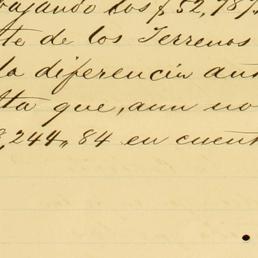 bajando los $ 52,787
te de los Terrenos
la diferencia an
lta que, aun no
,244,, 84 en cuent